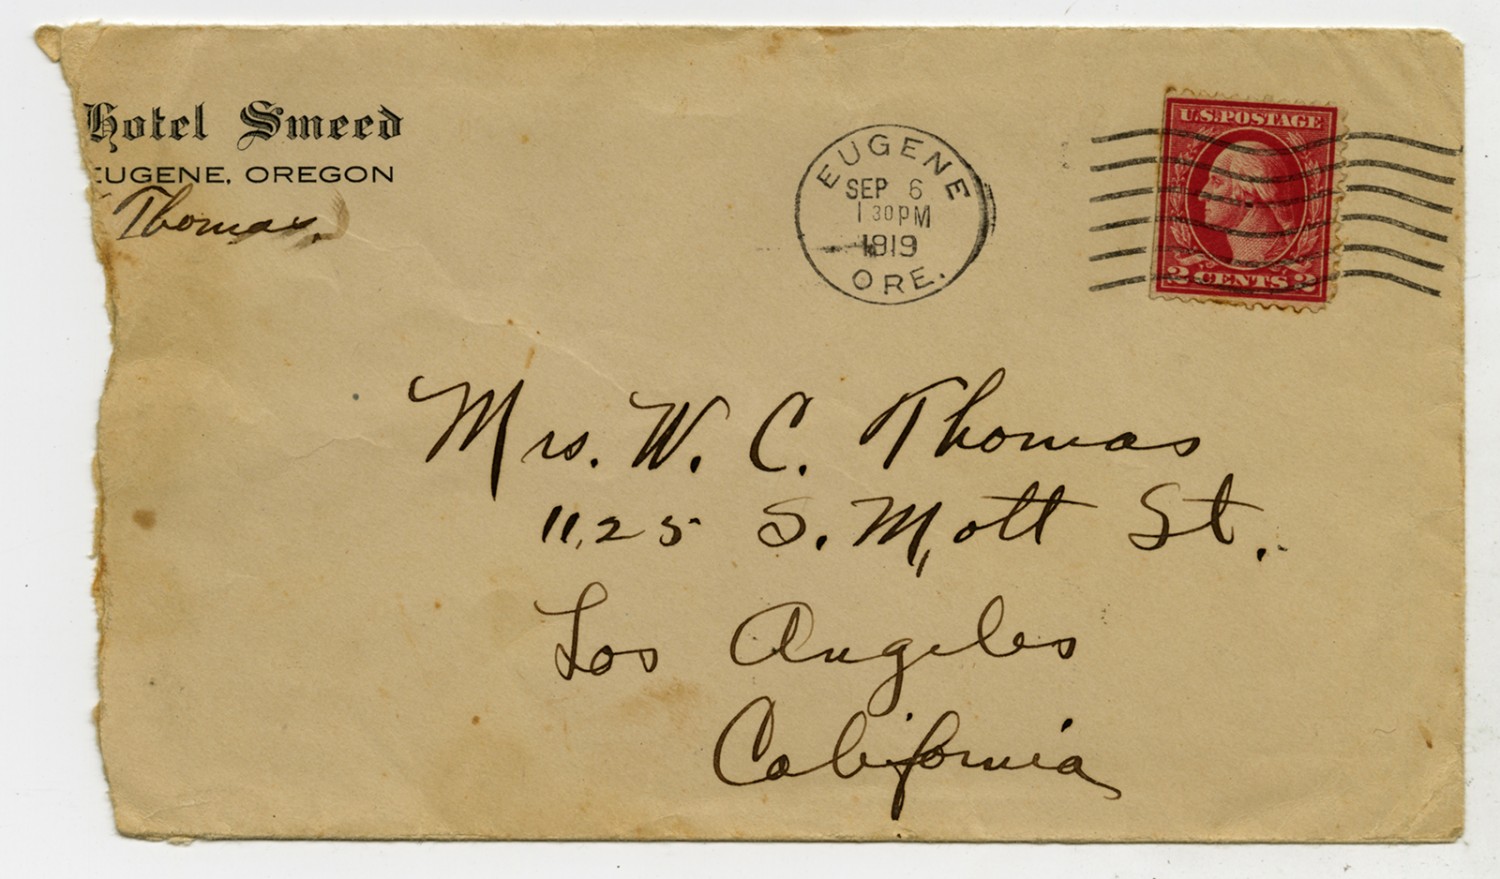 Hotel Smeed
EUGENE, OREGON
Thomas.
EUGENE
SEP 6
1 30 PM
1919
ORE.
U.S. POSTAGE
2 CENTS 2
Mrs. W. C. Thomas
1125 S. Mott St.
Los Angeles
California